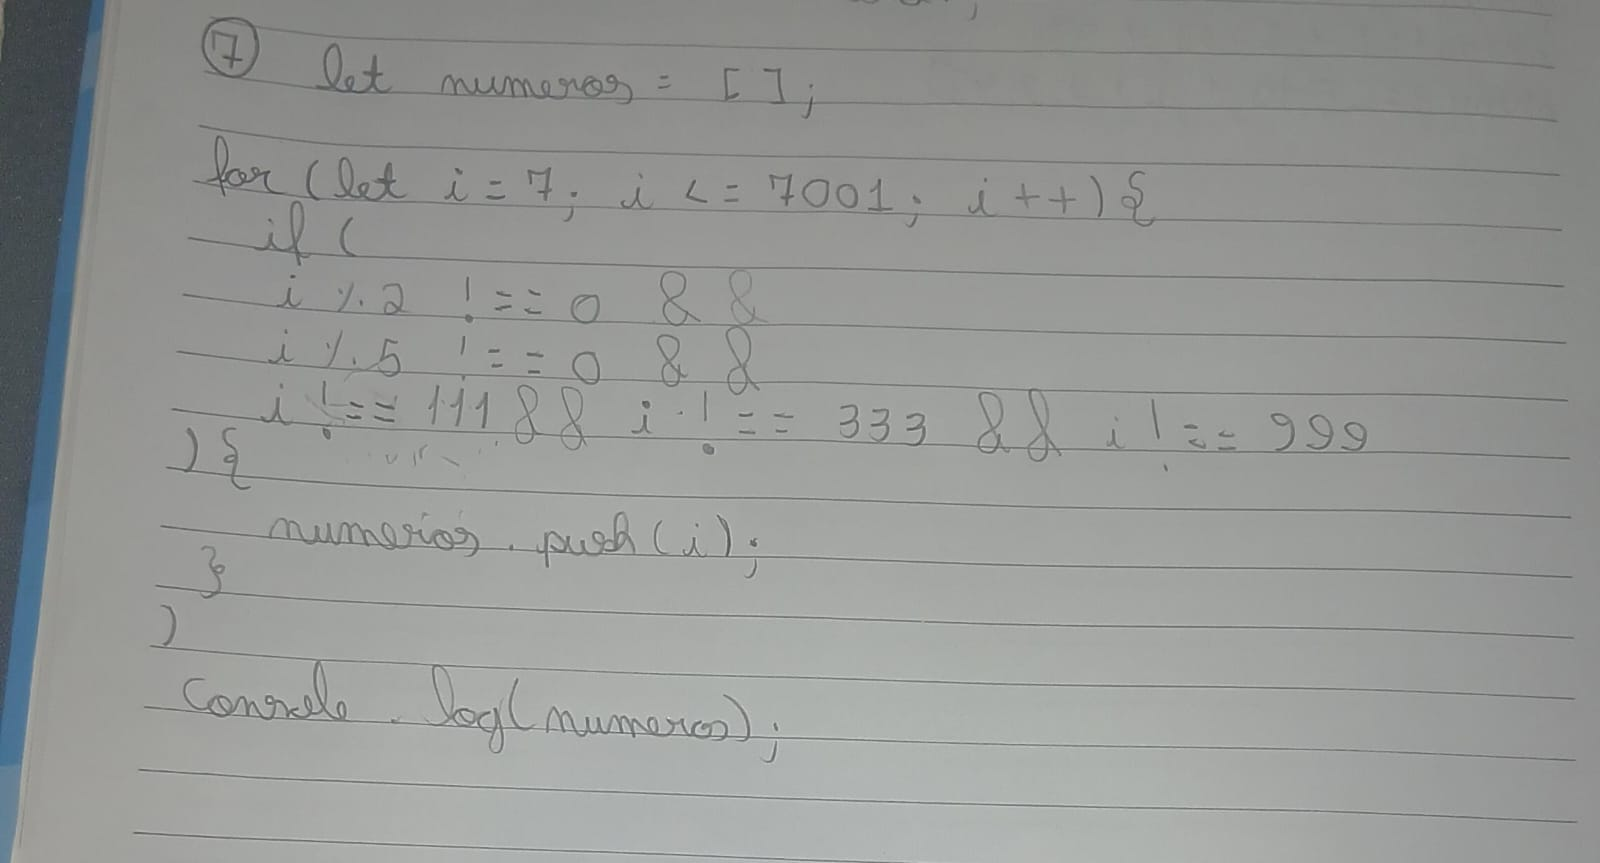 7 let numeros = [ ];
for (let i = 7; i <= 7001; i ++) {
if (
i % 2 !== 0 & &
i % 5 !== 0 & &
i !== 111 && i !== 333 && i !== 999
) {
numerios . push (i);
}
)
Console . log(numeros);